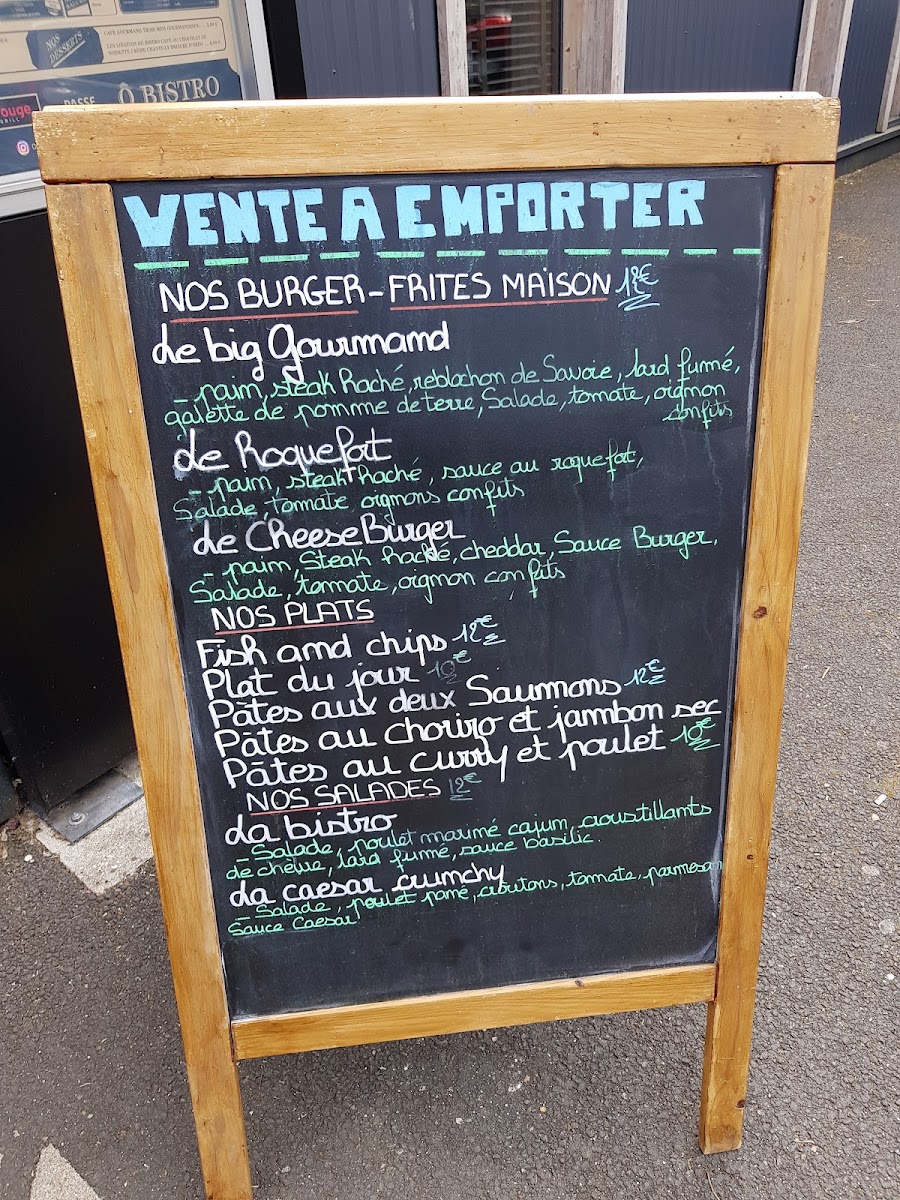 NOS DESSERTS
Ô BISTRO
PASSE
VENTE A EMPORTER
NOS BURGER - FRITES MAISON 12€
Le big Gourmand
- pain, steak haché, reblochon de Savoie, lard fumé,
galette de pomme de terre, Salade, tomate, oignon
confits
Le Roquefort
- pain, steak haché, sauce au roquefort,
Salade, tomate oignons confits
Le CheeseBurger
- pain, Steak haché, cheddar, Sauce Burger,
Salade, tomate, oignon confits
NOS PLATS
Fish and chips 12€
Plat du jour 10€
Pâtes aux deux Saumons 12€
Pâtes au chorizo et jambon sec
Pâtes au curry et poulet 10€
NOS SALADES 12€
La bistro
- Salade, poulet mariné cajun, croustillants
de chèvre, lard fumé, sauce basilic.
La caesar crunchy
- Salade, poulet pané, croutons, tomate, parmesan
Sauce Caesar